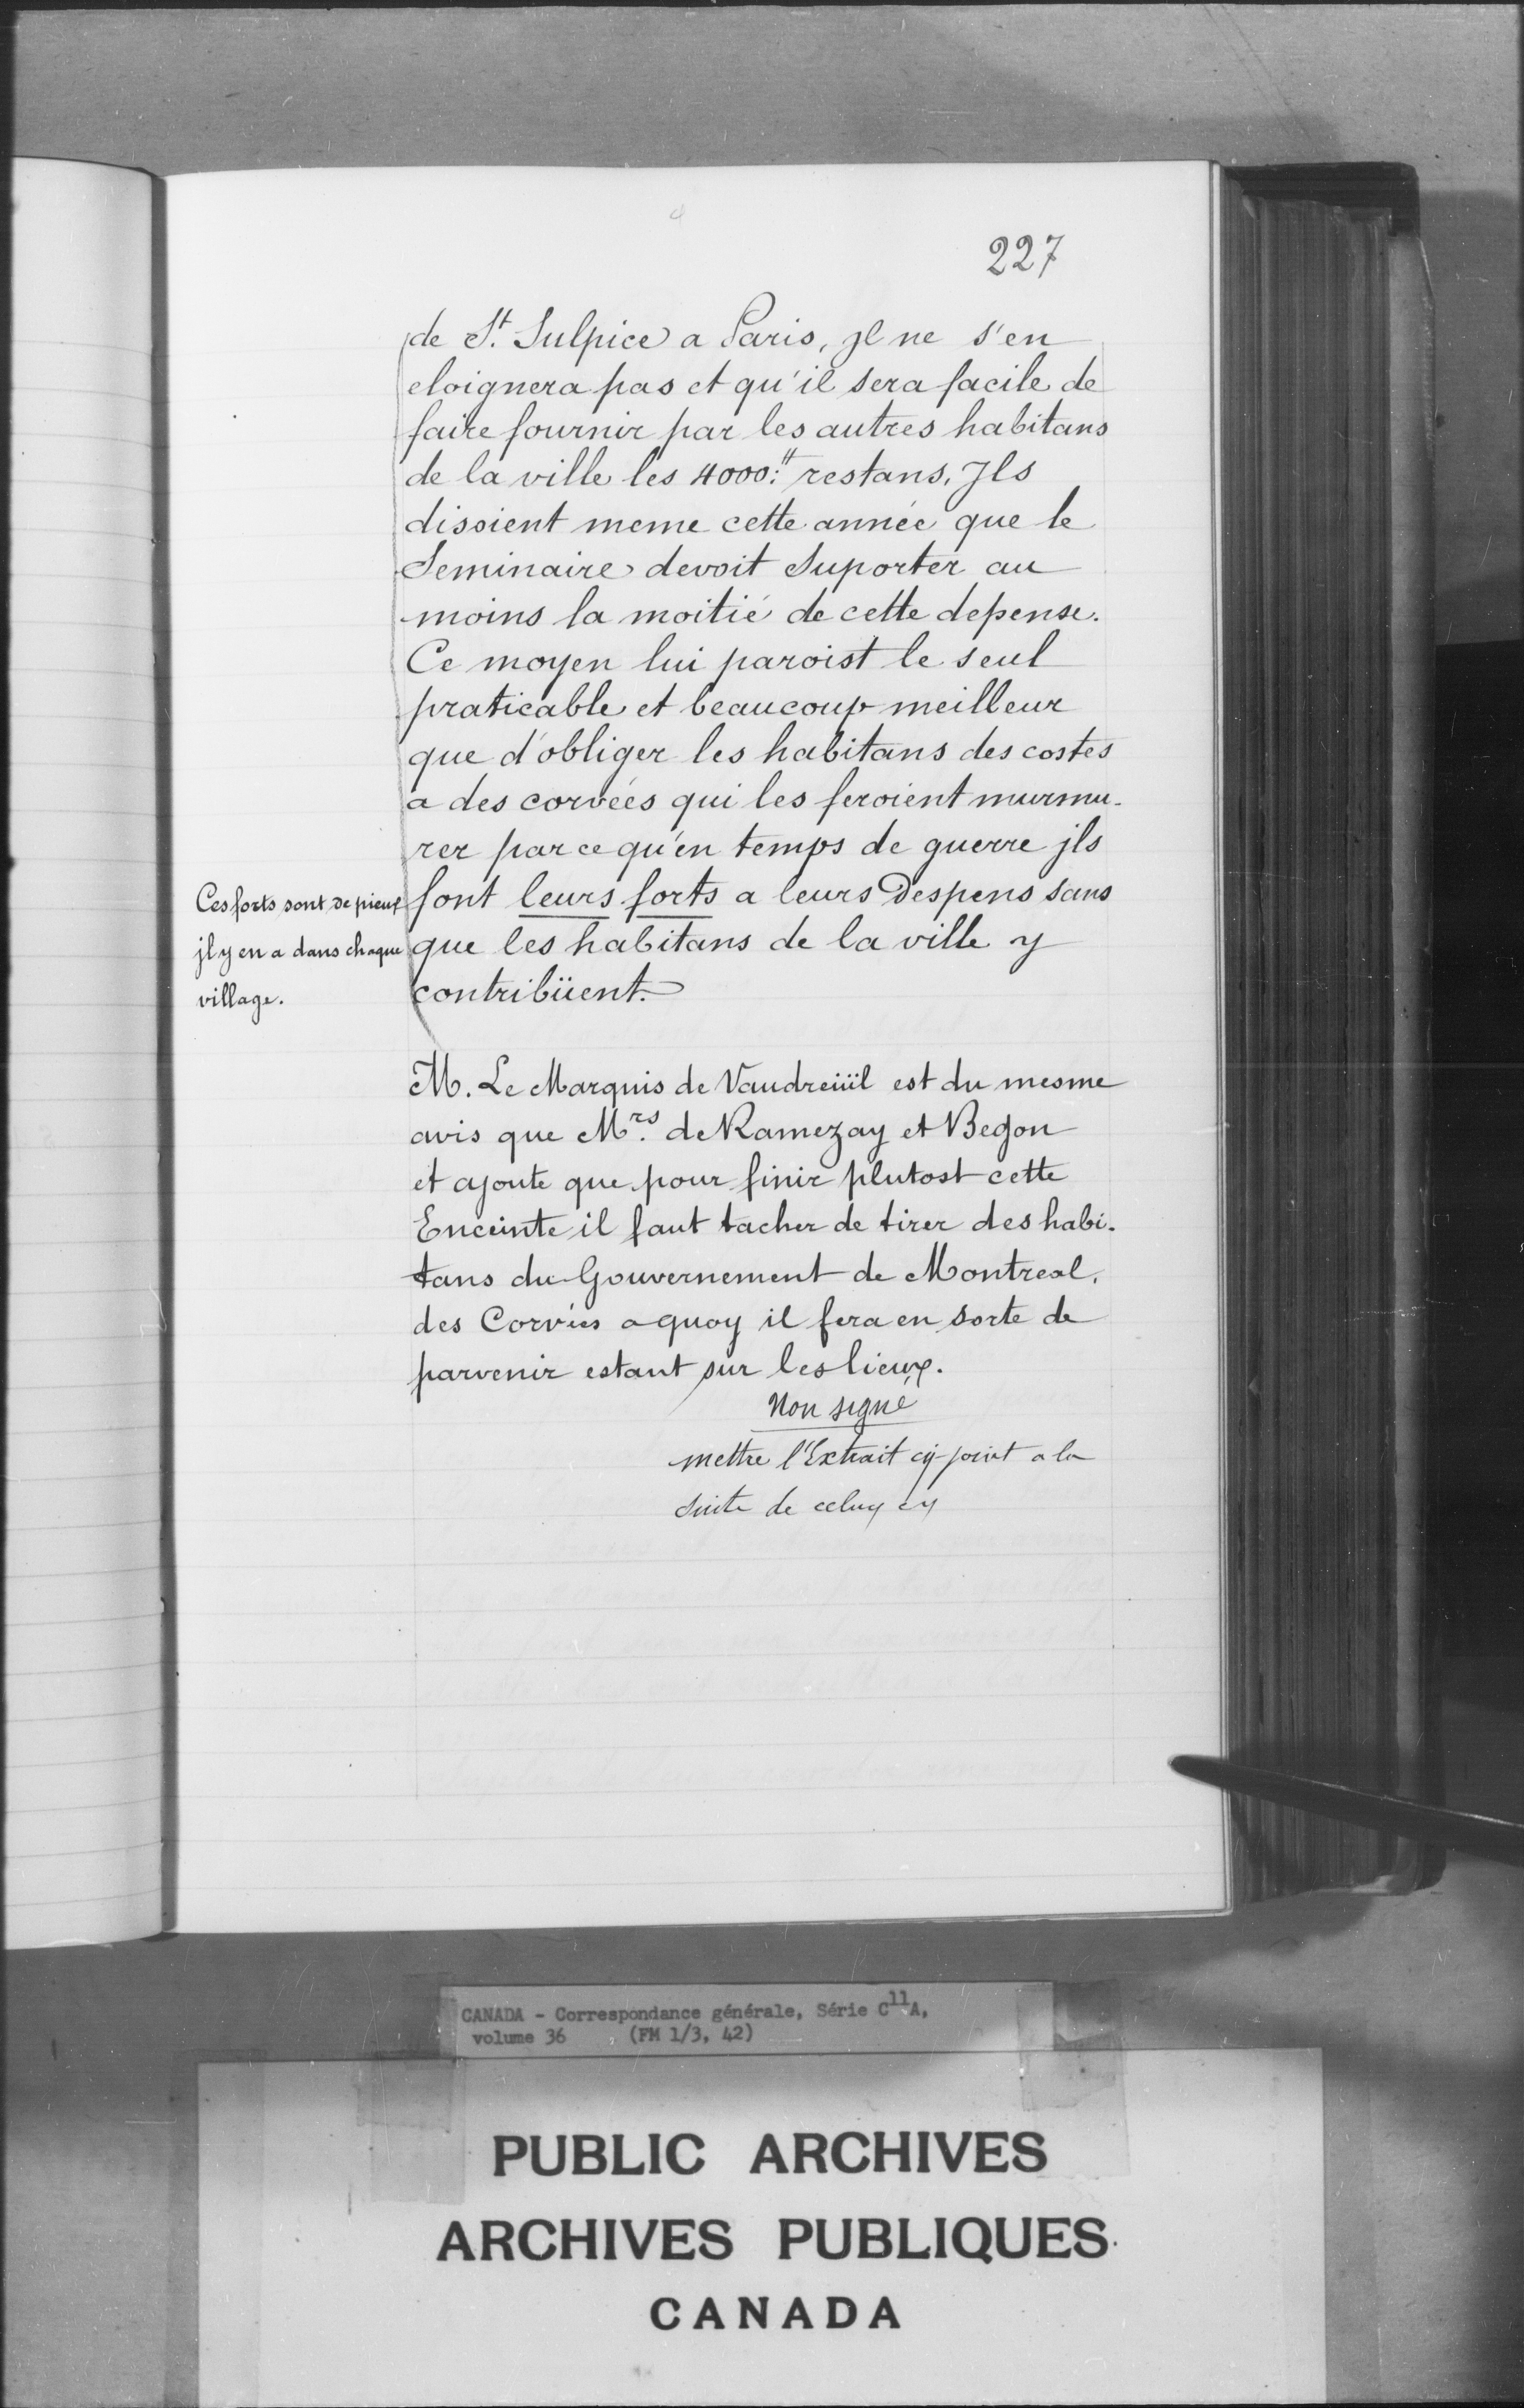 227
de St. Sulpice a Paris, jl ne s'en
eloignera pas et qu'il sera facile de
faire fournir par les autres habitans
de la ville les 4000:tt restans. Jls
disoient meme cette année que le
Seminaire devoit suporter au
moins la moitié de cette depense.
Ce moyen lui paroist le seul
praticable et beaucoup meilleur
que d'obliger les habitans des costes
a des corvées qui les feroient murmu-
rer parce qu'en temps de guerre jls
font leurs forts a leurs Despens sans
que les habitans de la ville y
contribüent.
Ces forts sont de pieux
jl y en a dans chaque
village.
M. Le Marquis de Vaudreüil est du mesme
avis que Mrs. de Ramezay et Begon
et ajoute que pour finir plutost cette
Enceinte il faut tacher de tirer des habi-
tans du Gouvernement de Montreal,
des Corvées a quoy il fera en sorte de
parvenir estant sur les lieux.
Non signé
mettre l'Extrait cy-joint a la
suite de celuy cy
CANADA - Correspondance générale, Série C11A,
volume 36 (FM 1/3, 42)
PUBLIC ARCHIVES
ARCHIVES PUBLIQUES
CANADA